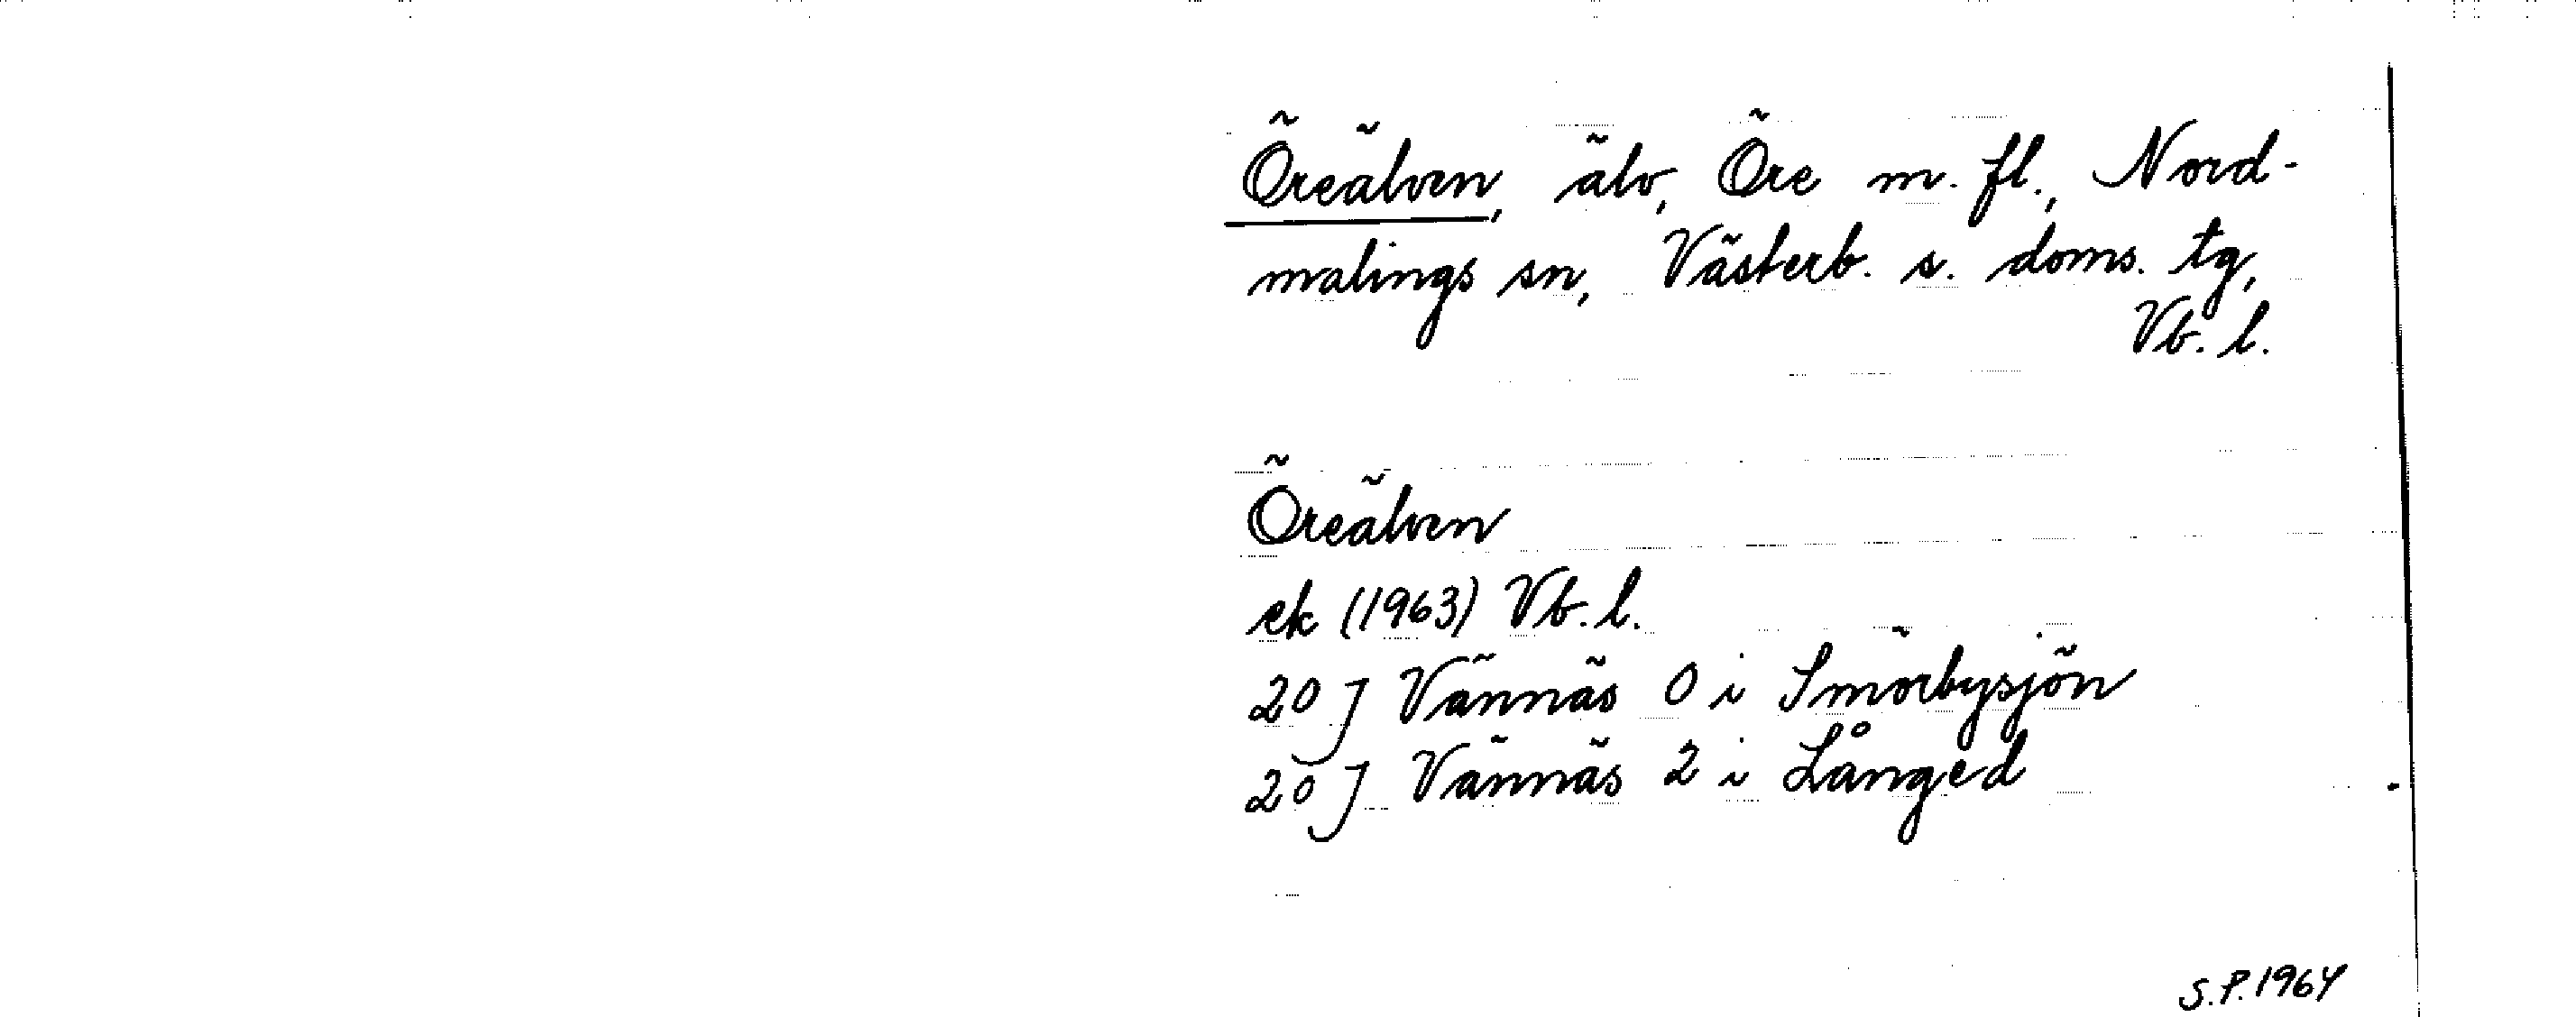 Öreälven, älv, Öre m. fl., Nord-
malings sn, Västerb. s. doms. tg,
Vb. l.
Öreälven
ek (1963) Vb. l.
20 J Vännäs 0 i Smörbysjön
20 J Vännäs 2 i Långed
S.P. 1964